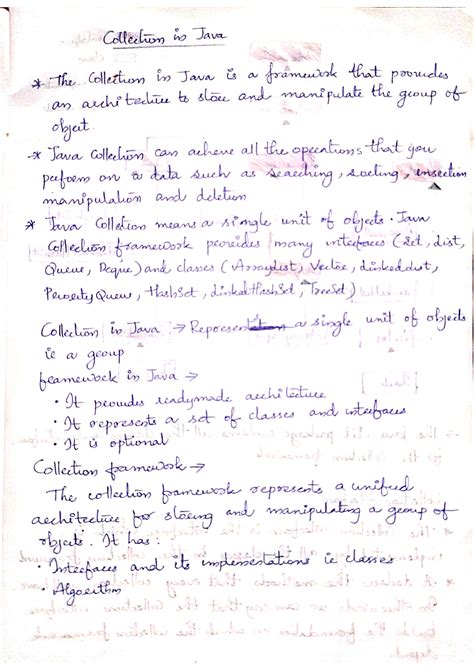 Collection in Java
* The Collection in Java is a framework that provides
an architecture to store and manipulate the group of
object.
* Java Collection can achieve all the operations that you
perform on a data such as searching, sorting, insertion
manipulation and deletion
* Java Collection means a single unit of objects. Java
Collection framework provides many interfaces (Set, List,
Queue, Deque) and classes (Arraylist, Vector, LinkedList,
PriorityQueue, HashSet, LinkedHashSet, TreeSet)
Collection in Java → Represent a single unit of objects
ie a group
framework in Java →
• It provides readymade architecture
• It represents a set of classes and interfaces
• It is optional
Collection framework →
The collection framework represents a unified
architecture for storing and manipulating a group of
objects. It has:
• Interfaces and its implementations ie classes
• Algorithm